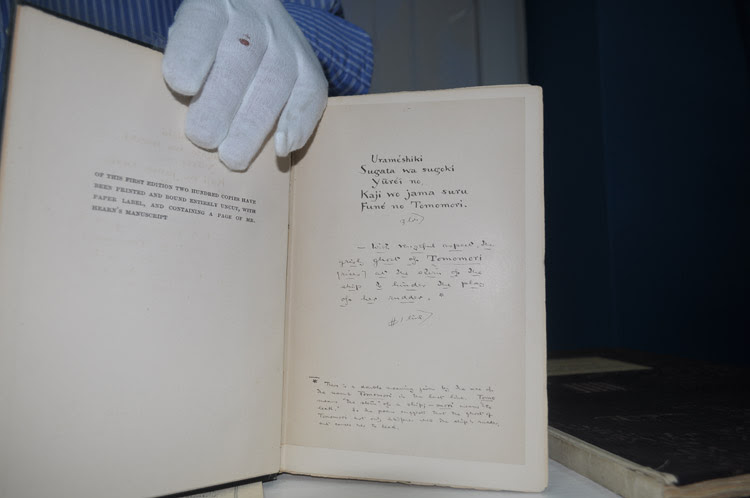 OF THIS FIRST EDITION TWO HUNDRED COPIES HAVE
BEEN PRINTED AND BOUND ENTIRELY UNCUT, WITH
PAPER LABEL, AND CONTAINING A PAGE OF MR.
HEARN'S MANUSCRIPT
Uraméshiki
Sugata wa sugoki
Yūréi no,
Kaji wo jama suru
Funé no Tomomori.
— With vengeful aspect, the
grisly ghost of Tomomori
[rises] at the stern of the
ship to hinder the play
of her rudder. *
* There is a double meaning given by the use of
the name Tomomori in the last line. Tomo
means "the stern" of a ship; — mori means "to
leak." So the poem suggests that the ghost of
Tomomori not only the ship's rudder,
but causes her to leak.